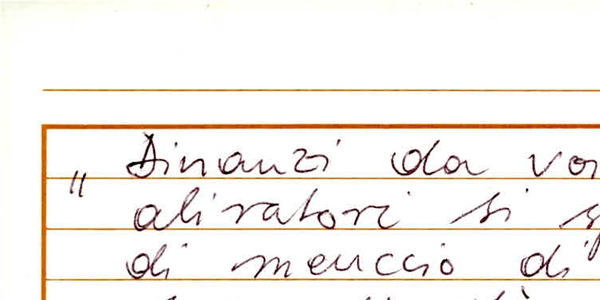 " Dinanzi da vo
alivatori si s
di meuccio di